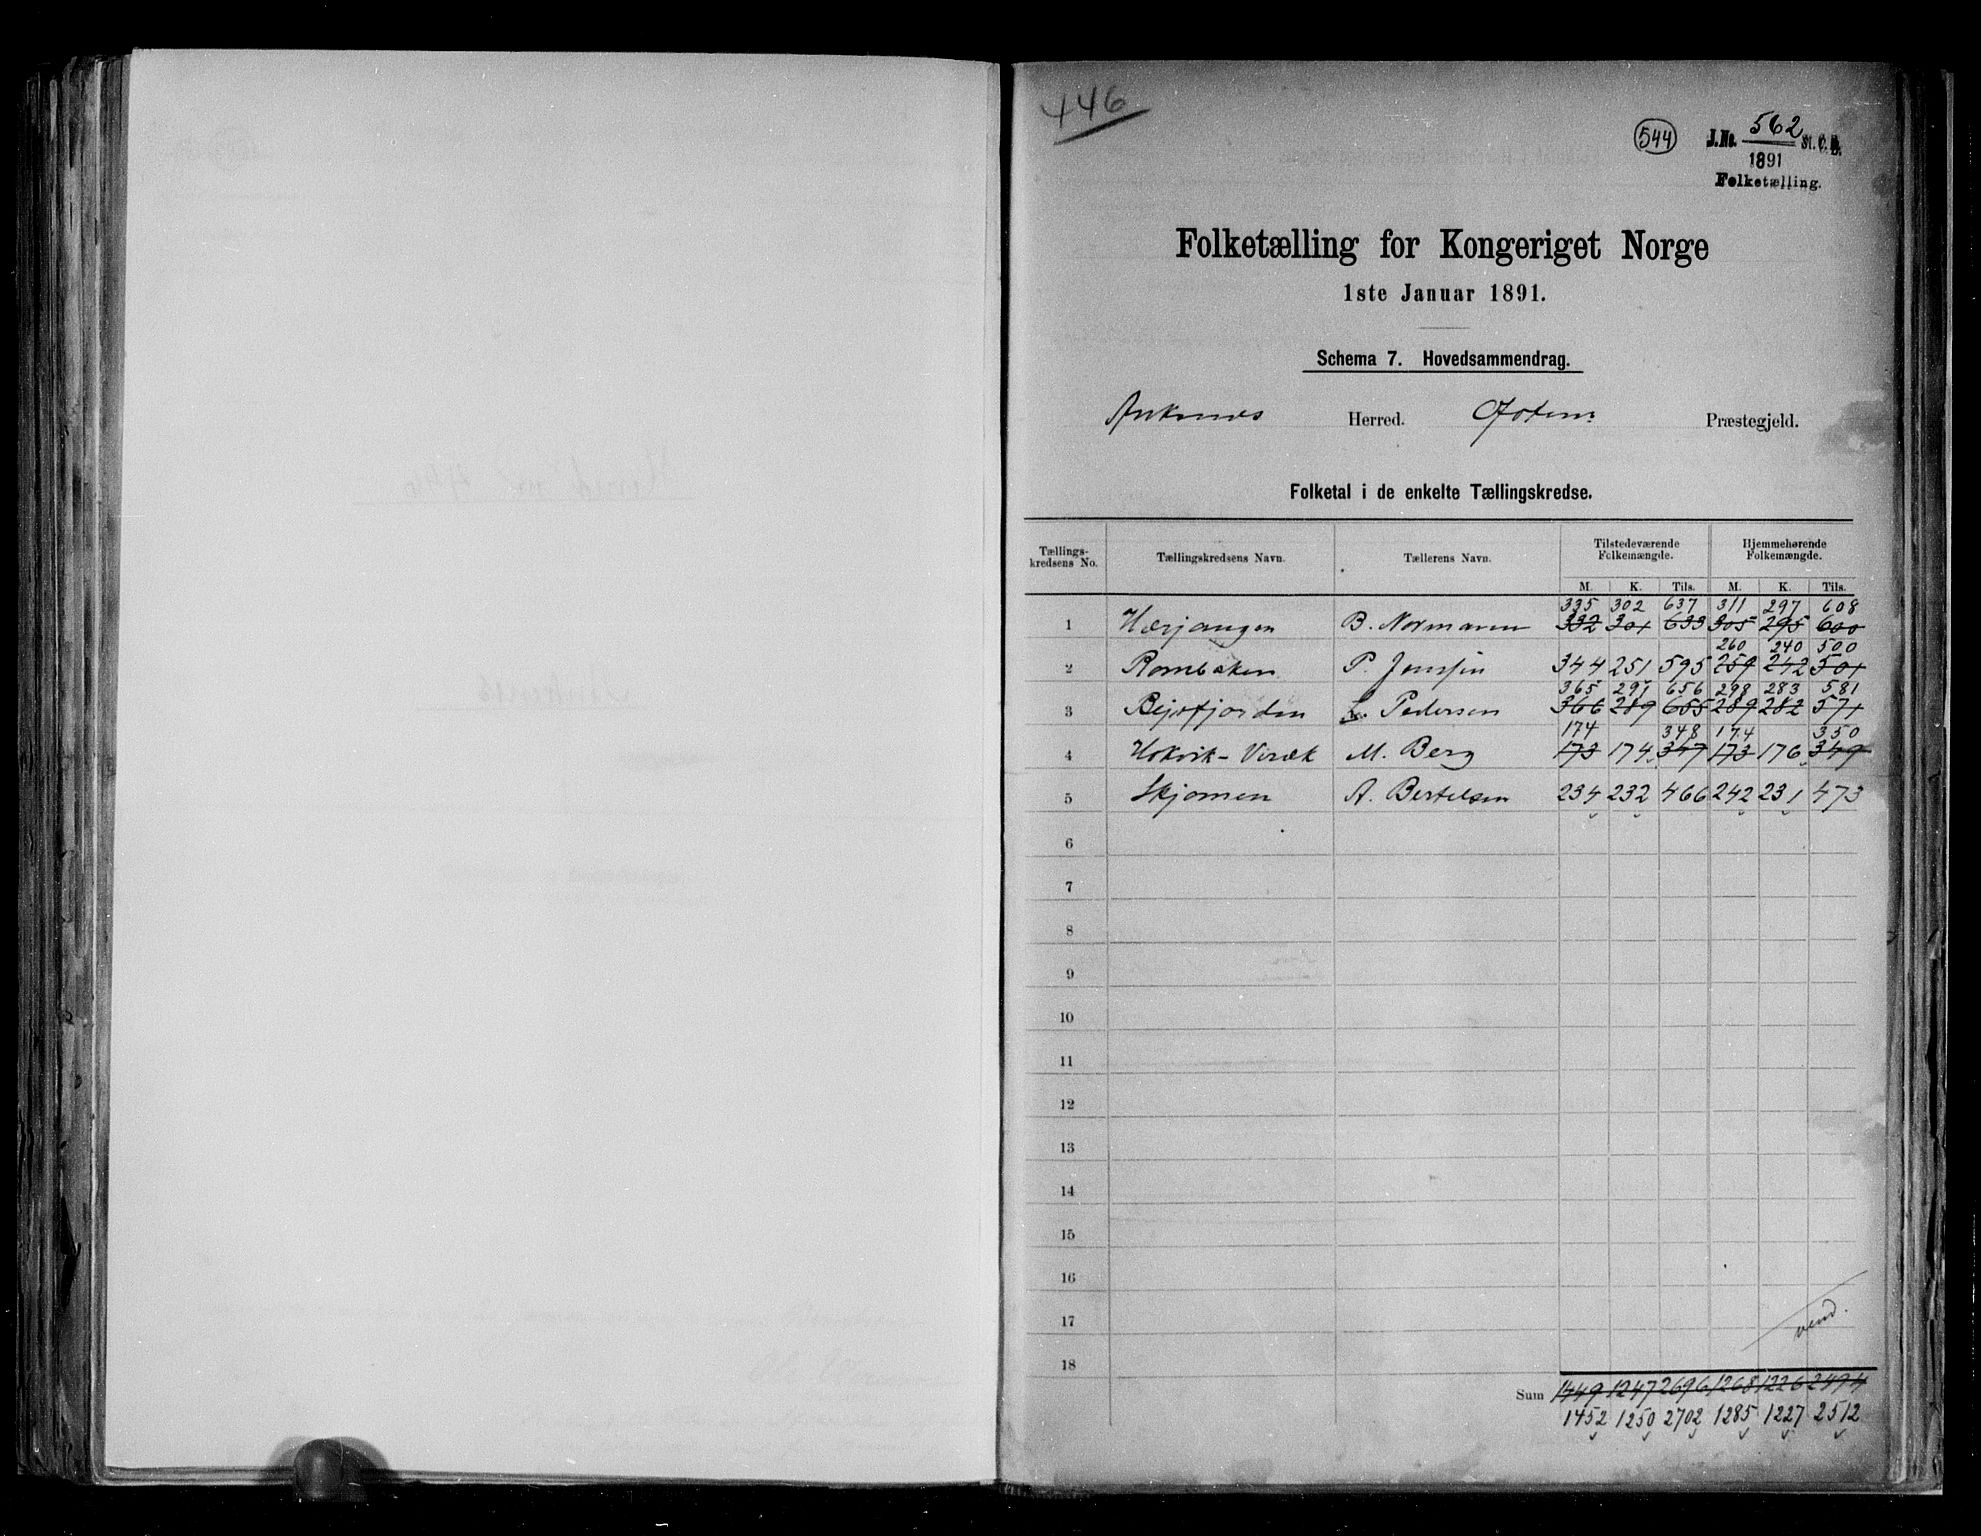 446
544 J.No. 562 St. C. B.
1891
Folketælling.
Folketælling for Kongeriget Norge
1ste Januar 1891.
Schema 7. Hovedsammendrag.
Ankenes Herred. Ofoten Præstegjeld.
Folketal i de enkelte Tællingskredse.
Tællings-kredsens No. Tællingskredsens Navn. Tællerens Navn. Tilstedeværende Folkemængde. Hjemmehørende Folkemængde.
M. K. Tils. M. K. Tils.
335 302 637 311 297 608
1 Herjangen B. Normann 332 301 633 305 295 600
260 240 500
2 Rombaken P. Jenssen 344 251 595 259 242 501
365 291 656 298 283 581
3 Bejsfjorden L. Pedersen 366 289 655 289 282 571
174 348 174 350
4 Hokvik-Viræk M. Berg 173 174 347 173 176 349
5 Skjomen A. Bertelsen 234 232 466 242 231 473
6
7
8
9
10
11
12
13
14
15
16
17 vend.
18
Sum 1449 1247 2696 1268 1226 2494
1452 1250 2702 1285 1227 2512